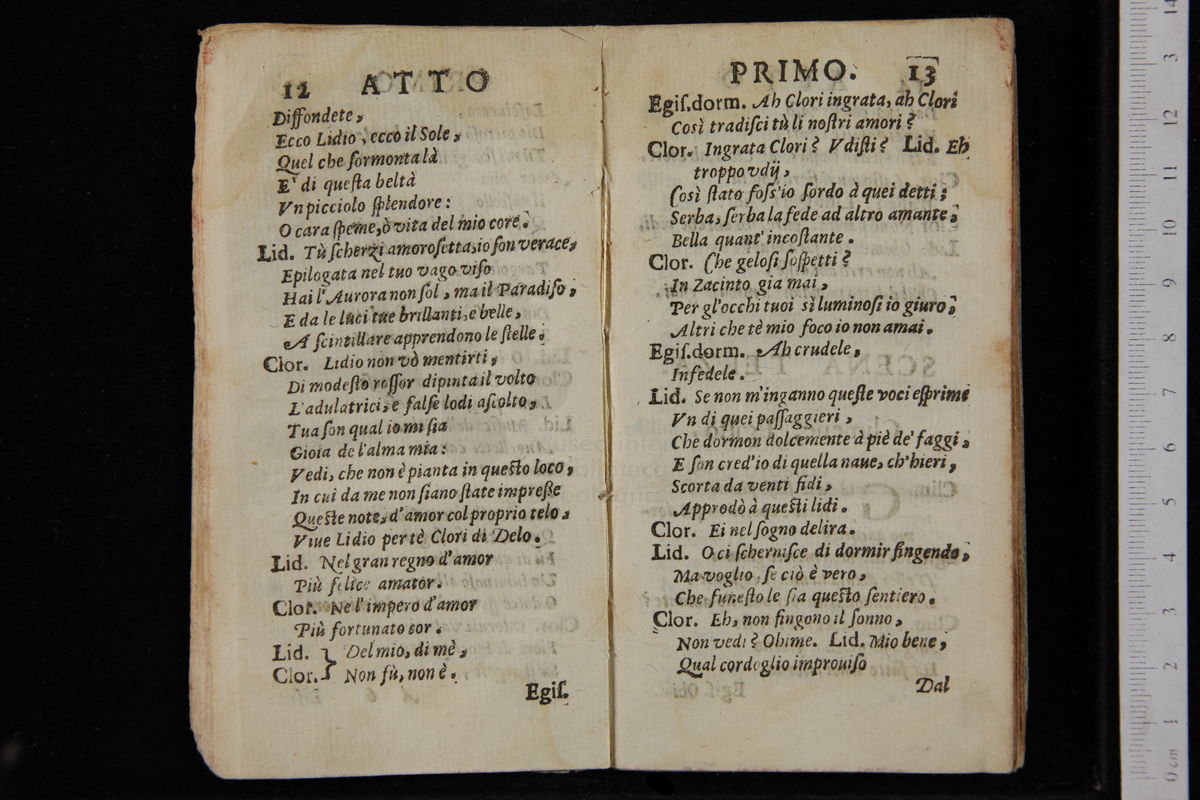 12 ATTO
Diffondete,
Ecco Lidio, ecco il Sole,
Quel che sormonta là
E' di questa beltà
Vn picciolo splendore:
O cara speme, ò vita del mio core.
Lid. Tù scherzi amorosetta, io son verace,
Epilogata nel tuo vago viso
Hai l'Aurora non sol, ma il Paradiso,
E da le luci tue brillanti, e belle,
A scintillare apprendono le stelle.
Clor. Lidio non vò mentirti,
Di modesto rossor dipinta il volto
L'adulatrici, e false lodi ascolto,
Tua son qual io mi sia
Gioia de l'alma mia:
Vedi, che non è pianta in questo loco,
In cui da me non siano state impresse
Queste note, d'amor col proprio telo,
Viue Lidio per tè Clori di Delo.
Lid. Nel gran regno d'amor
Più felice amator.
Clor. Ne l'impero d'amor
Più fortunato cor.
Lid. } Del mio, di mè,
Clor. } Non fù, non è.
Egis.
PRIMO. 13
Egis. dorm. Ah Clori ingrata, ah Clori
Così tradisci tù li nostri amori?
Clor. Ingrata Clori? Vdisti? Lid. Eh
troppo vdij,
Così stato foss'io sordo à quei detti;
Serba, serba la fede ad altro amante;
Bella quant' incostante.
Clor. Che gelosi sospetti?
In Zacinto gia mai,
Per gl'occhi tuoi sì luminosi io giuro;
Altri che tè mio foco io non amai.
Egis. dorm. Ah crudele,
Infedele.
Lid. Se non m'inganno queste voci esprime
Vn di quei passaggieri,
Che dormon dolcemente à piè de' faggi,
E son cred'io di quella naue, ch'hieri,
Scorta da venti fidi,
Approdò à questi lidi.
Clor. Ei nel sogno delira.
Lid. O ci schernisce di dormir fingendo,
Ma voglio, se ciò è vero,
Che funesto le sia questo sentiero.
Clor. Eh, non fingono il sonno,
Non vedi? Ohime. Lid. Mio bene,
Qual cordoglio improuiso
Dal